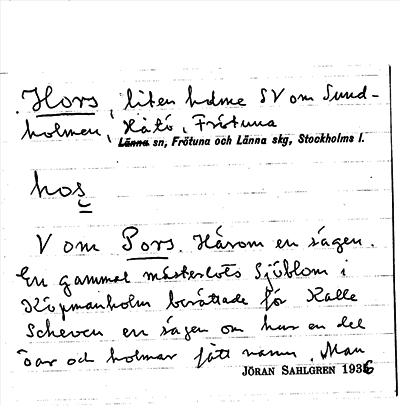 Hors, liten holme SV om Sund-
holmen, Håtö, Frötuna
Länna sn, Frötuna och Länna skg, Stockholms l.
hos
V om Pors. Härom en sägen.
En gammal mästerlots Sjöblom i
Köpmanholm berättade för Kalle
Scheven en sägen om hur en del
öar och holmar fått namn. Man
JÖRAN SAHLGREN 1936